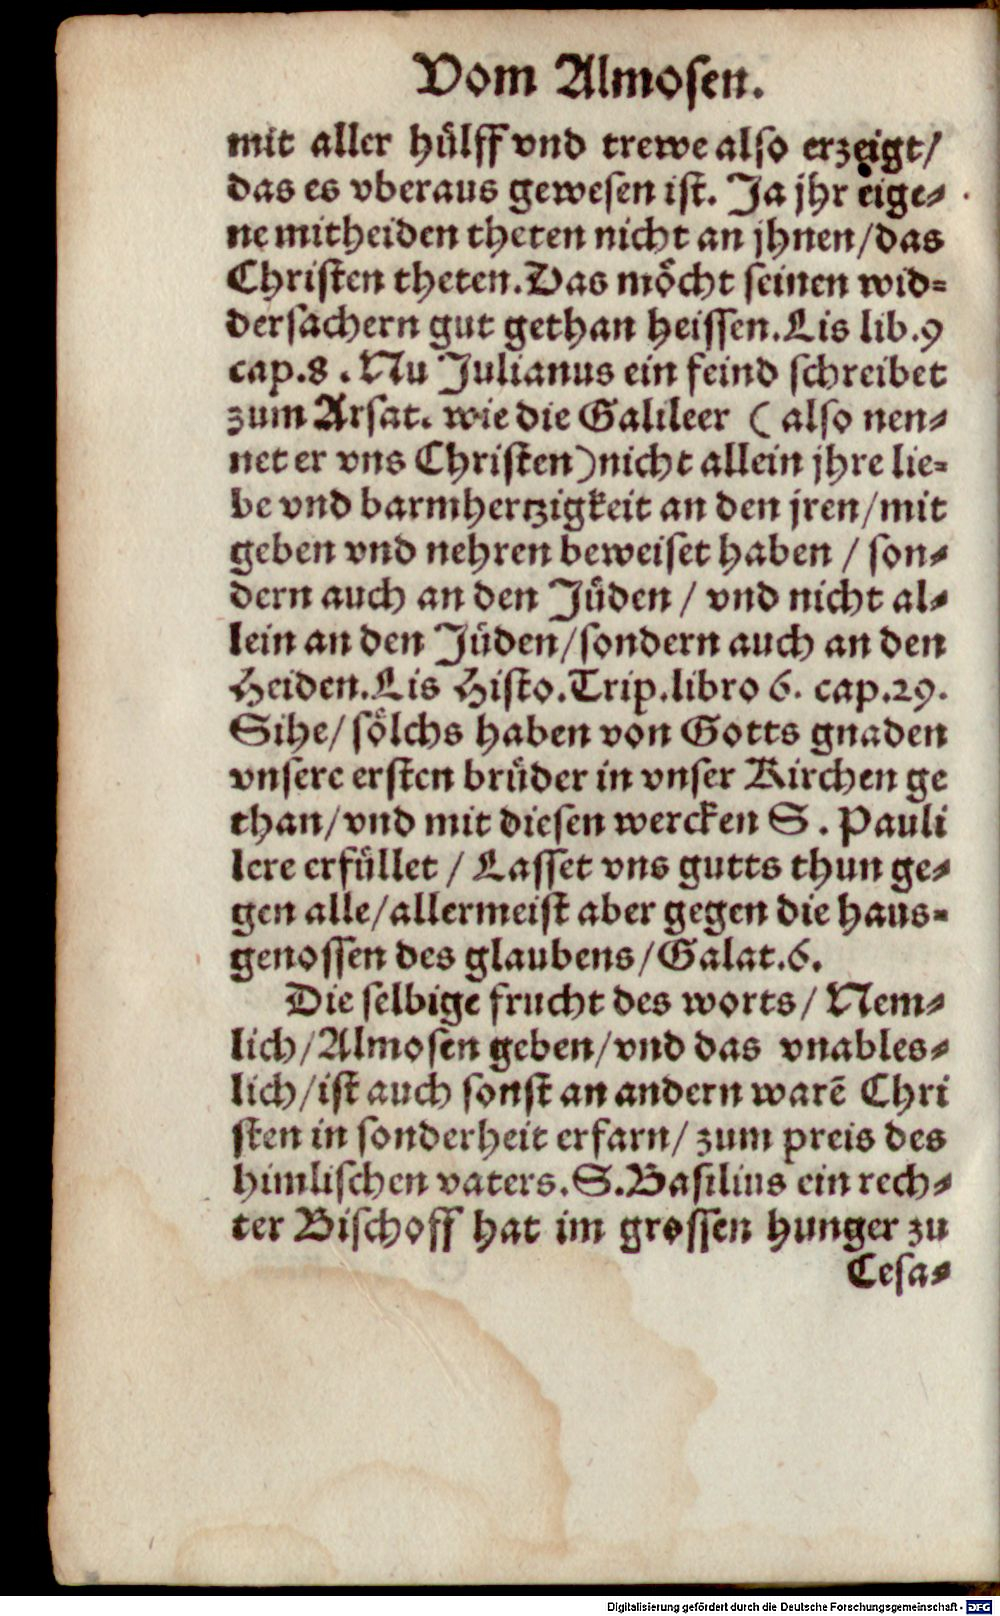 Vom Almosen.
mit aller hülff vnd trewe also erzeigt/
das es vberaus gewesen ist. Ja jhr eige⸗
ne mitheiden theten nicht an jhnen/das
Christen theten. Das möcht seinen wid⸗
dersachern gut gethan heissen. Lis lib.9
cap.8. Nu Julianus ein feind schreibet
zum Arsat. wie die Galileer (also nen⸗
net er vns Christen) nicht allein jhre lie⸗
be vnd barmhertzigkeit an den jren/mit
geben vnd nehren beweiset haben / son⸗
dern auch an den Jüden / vnd nicht al⸗
lein an den Jüden/sondern auch an den
Heiden. Lis Histo. Trip. libro 6. cap.29.
Sihe/ sölchs haben von Gotts gnaden
vnsere ersten brüder in vnser Kirchen ge
than/vnd mit diesen wercken S. Pauli
lere erfüllet / Lasset vns gutts thun ge⸗
gen alle/allermeist aber gegen die haus⸗
genossen des glaubens/Galat.6.
Die selbige frucht des worts/ Nem⸗
lich/Almosen geben/vnd das vnables⸗
lich/ist auch sonst an andern warē Chri
sten in sonderheit erfarn/ zum preis des
himlischen vaters. S. Basilius ein rech⸗
ter Bischoff hat im grossen hunger zu
Cesa⸗
Digitalisierung gefördert durch die Deutsche Forschungsgemeinschaft - DFG